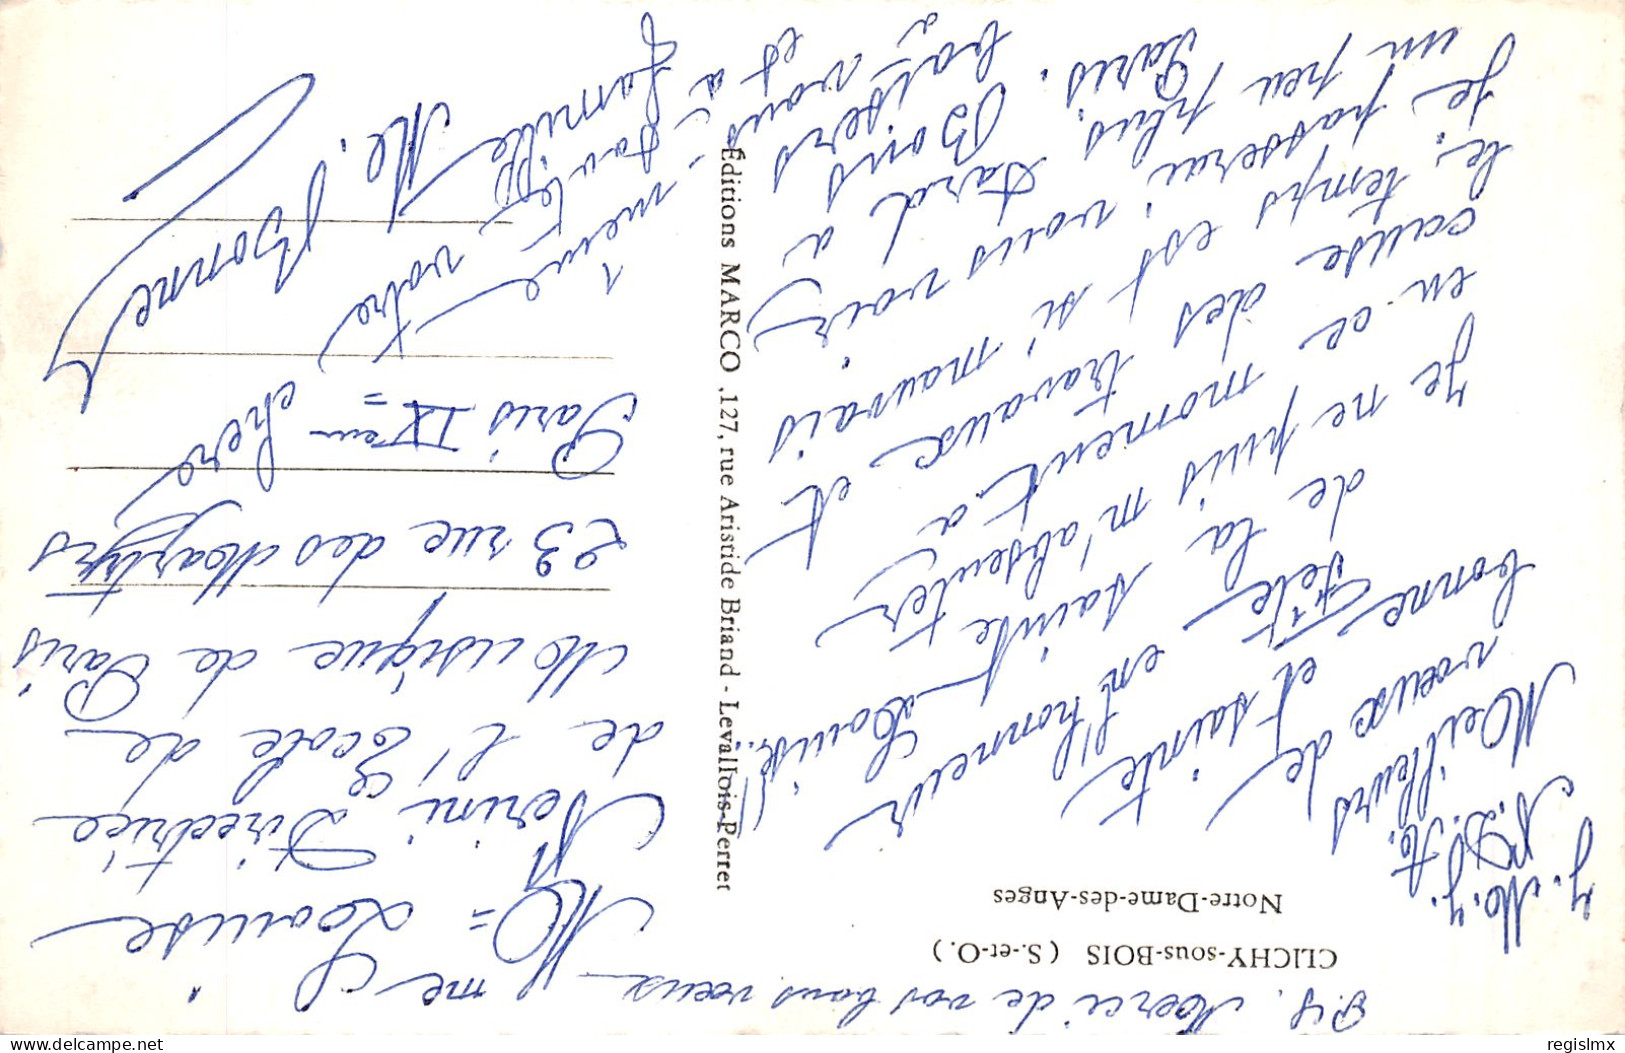 P.S. Merci de vos bons vœux
CLICHY-sous-BOIS (S.-et-O.)
Notre-Dame-des-Anges
J. M. J.
N. D. A.
Meilleurs
vœux de
bonne Fête
et sainte
en l'honneur
de la sainte
Louise!
Je ne puis m'absenter
en ce moment à
cause des travaux et
le temps est si mauvais
je passerai vous voir
un peu plus tard à
Paris. Bons
baisers à
vous
et à
famille
Éditions MARCO, 127, rue Aristide Briand - Levallois-Perret
Mme Louise
Nerini Directrice
de l'École de
Musique de Paris
23 rue des Martyrs
Paris IXème
votre
cher
M.
Bonnet
regislmx
delcampe.net